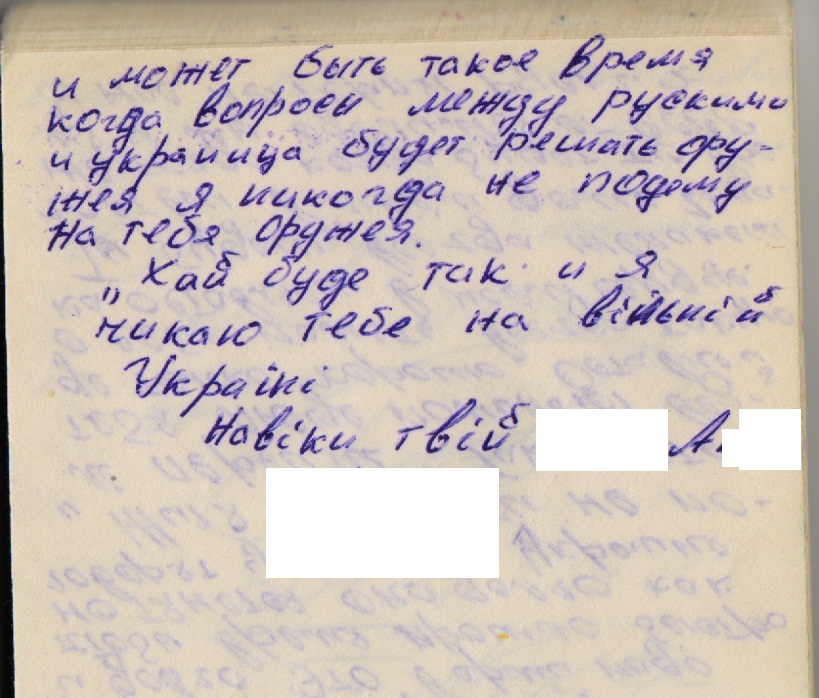 и может быть такое время
когда вопросы между рускими
и украинца будет решать ору-
жея я никогда не подыму
на тебя оружея.
„Хай буде так и я
чикаю тебе на вільній
Україні
Навіки твій А